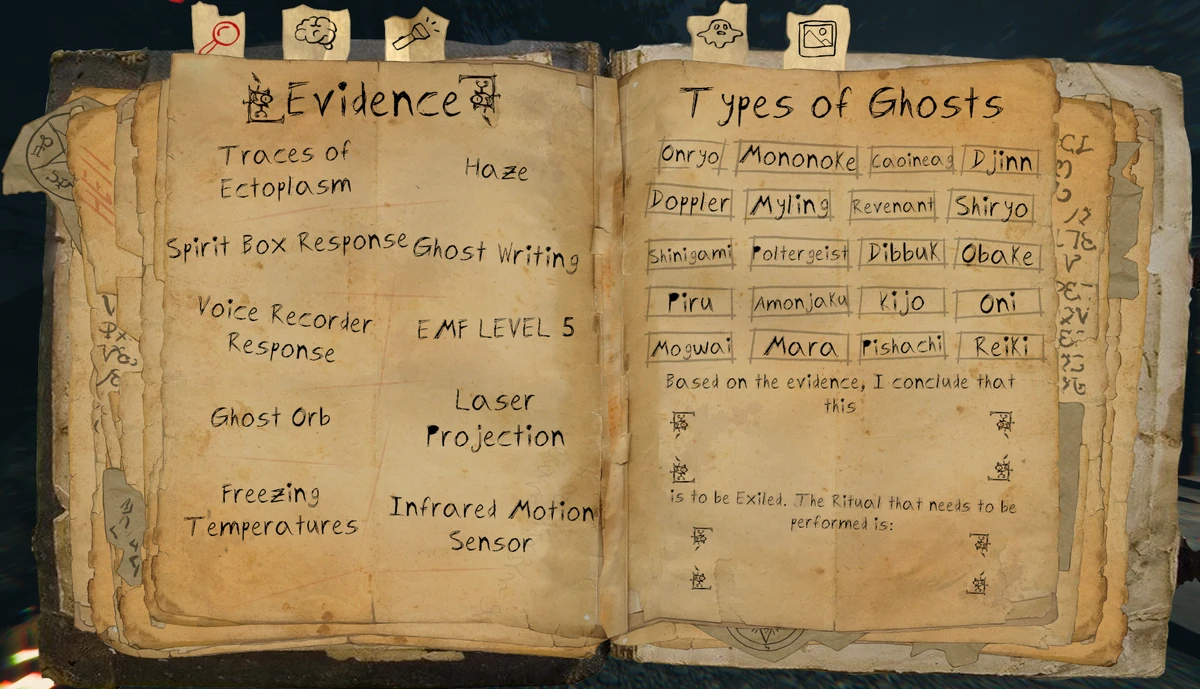 Evidence
Traces of
Ectoplasm
Haze
Spirit Box Response
Ghost Writing
Voice Recorder
Response
EMF LEVEL 5
Ghost Orb
Laser
Projection
Freezing
Temperatures
Infrared Motion
Sensor
Types of Ghosts
Onryo Mononoke Caoineag Djinn
Doppler Myling Revenant Shiryo
Shinigami Poltergeist Dibbuk Obake
Piru Amonjaku Kijo Oni
Mogwai Mara Pishachi Reiki
Based on the evidence, I conclude that
this
is to be Exiled. The Ritual that needs to be
performed is: